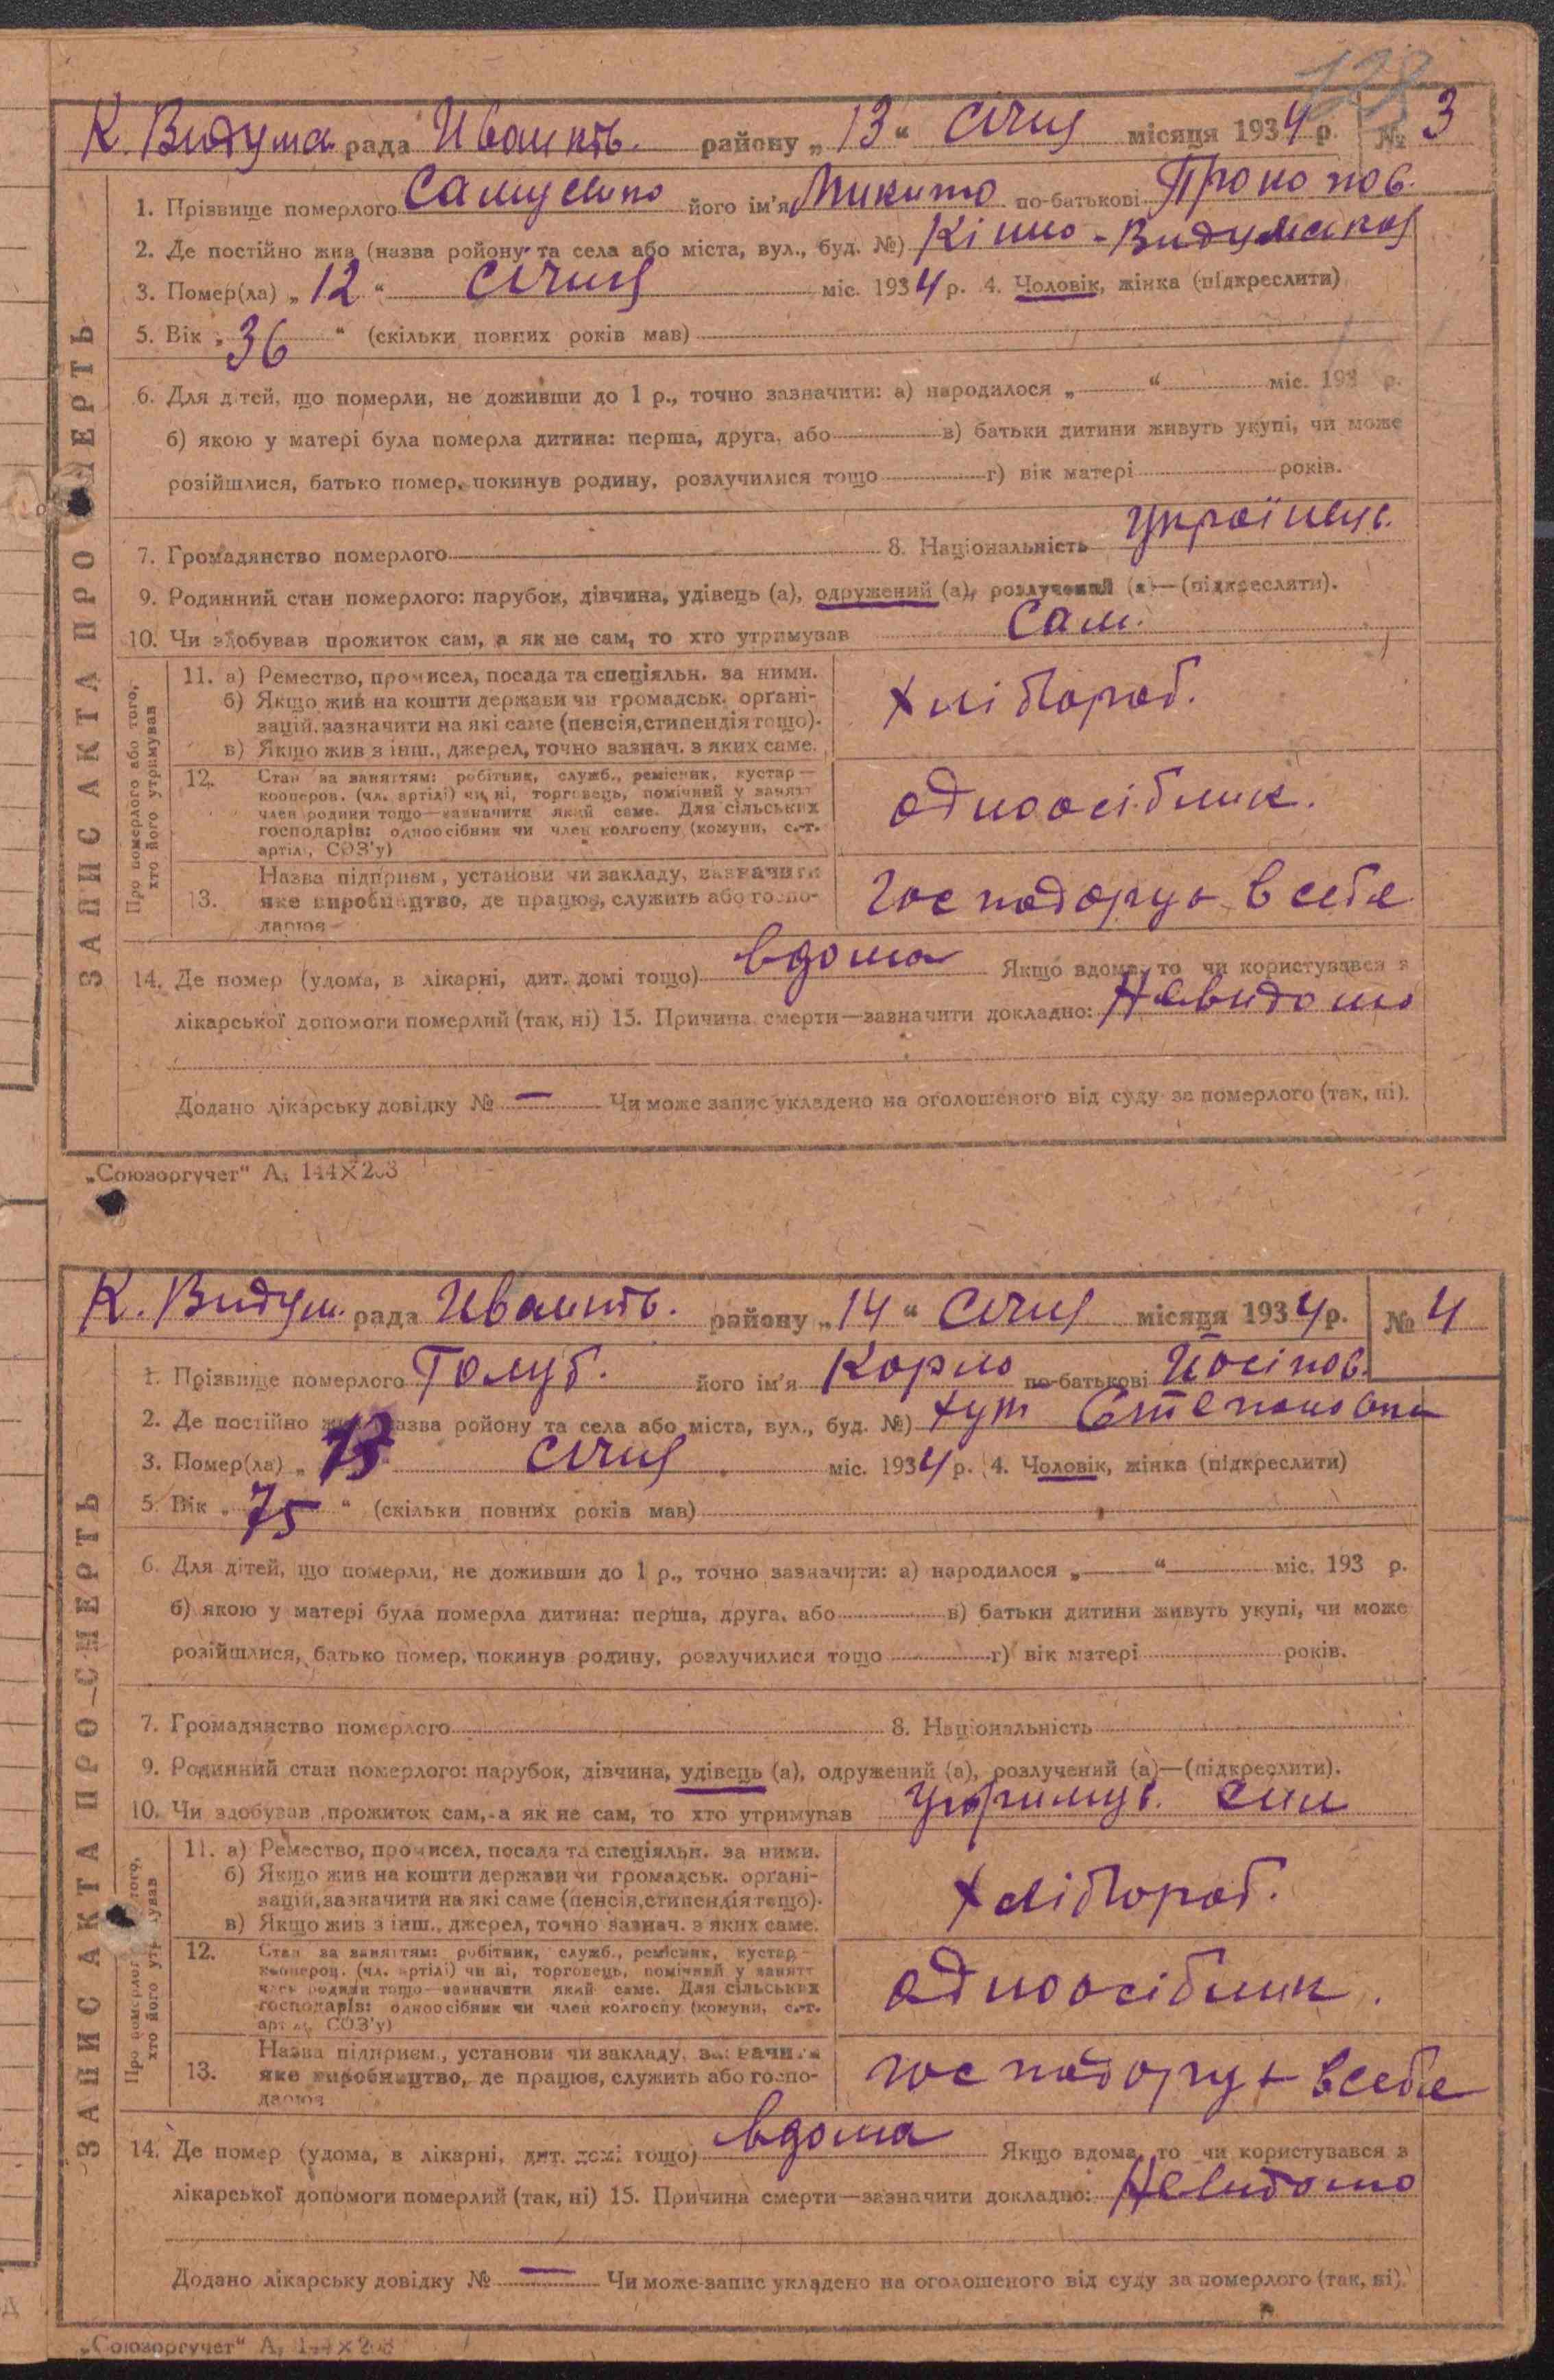 128
К. Видума. рада Ивашків. району „13“ січня місяця 1934 р. № 3
1. Прізвище померлого Самусенко його ім'я Микито по-батькові Прокопов.
2. Де постійно жив (назваройону та села або міста, вул., буд. №) Кішно-Видумаков
3. Помер(ла) „12“ січня міс. 1934 р. 4. Чоловік, жінка (підкреслити)
5. Вік „36“ (скільки повних років мав)
6. Для дітей, що померли, не доживши до 1 р., точно зазначити: а) народилося „ “ міс. 193 р.
б) якою у матері була померла дитина: перша, друга, або в) батьки дитини живуть укупі, чи може
розійшлися, батько помер, покинув родину, розлучилися тощо г) вік матері років.
7. Громадянство померлого 8. Національність українец.
9. Родинний стан померлого: парубок, дівчина, удівець (а), одружений (а), розлучений (а)—(підкреслити).
10. Чи здобував прожиток сам, а як не сам, то хто утримував сам.
ЗАПИС АКТА ПРО СМЕРТЬ
Про померлого або того, хто його утримував
11. а) Ремество, промисел, посада та спеціяльн. за ними.
б) Якщо жив на кошти держави чи громадськ. органі-
зацій, зазначити на які саме (пенсія, стипендія тощо).
в) Якщо жив з інш., джерел, точно зазнач. з яких саме.
хлібороб.
12. Стан за заняттям: робітник, служб., ремісник, кустар—
кооперов. (чл. артілі) чи ні, торговець, помічний у занятт
член родини тощо—зазначити який саме. Для сільських
господарів: одноосібник чи член колгоспу (комуни, с.-г.
артілі, СОЗ'у)
одноосібник.
13. Назва підприєм., установи чи закладу, зазначити
яке виробництво, де працює, служить або госпо-
дарює
господорує в себе
14. Де помер (удома, в лікарні, дит. домі тощо) вдома Якщо вдома, то чи користувався з
лікарської допомоги померлий (так, ні) 15. Причина смерти—зазначити докладно: Невидомо
Додано лікарську довідку № — Чи може запис укладено на оголошеного від суду за померлого (так, ні).
„Союзоргучет“ А₅ 144×203
К. Видум. рада Ивашків. району „14“ січня місяця 1934 р. № 4
1. Прізвище померлого Голуб. його ім'я Корпо по-батькові Йосіпов.
2. Де постійно жив (назва ройону та села або міста, вул., буд. №) хут Степановка
3. Помер(ла) „13 січня міс. 1934 р. 4. Чоловік, жінка (підкреслити)
5. Вік „75“ (скільки повних років мав)
6. Для дітей, що померли, не доживши до 1 р., точно зазначити: а) народилося „ “ міс. 193 р.
б) якою у матері була померла дитина: перша, друга, або в) батьки дитини живуть укупі, чи може
розійшлися, батько помер, покинув родину, розлучилися тощо г) вік матері років.
7. Громадянство померлого 8. Національність
9. Родинний стан померлого: парубок, дівчина, удівець (а), одружений (а), розлучений (а)—(підкреслити).
10. Чи здобував прожиток сам, а як не сам, то хто утримував утримув. син
ЗАПИС АКТА ПРО СМЕРТЬ
Про померлого того, хто його утримував
11. а) Ремество, промисел, посада та спеціяльн. за ними.
б) Якщо жив на кошти держави чи громадськ. органі-
зацій, зазначити на які саме (пенсія, стипендія тощо).
в) Якщо жив з інш., джерел, точно зазнач. з яких саме.
хлібороб.
12. Стан за заняттям: робітник, служб., ремісник, кустар—
кооперов. (чл. артілі) чи ні, торговець, помічний у занятт
член родини тощо—зазначити який саме. Для сільських
господарів: одноосібник чи член колгоспу (комуни, с.-г.
артілі, СОЗ'у)
одноосібник.
13. Назва підприєм., установи чи закладу, зазначити
яке виробництво, де працює, служить або госпо-
дарює
господорує в себе
14. Де помер (удома, в лікарні, дит. домі тощо) вдома Якщо вдома, то чи користувався з
лікарської допомоги померлий (так, ні) 15. Причина смерти—зазначити докладно: Невидомо
Додано лікарську довідку № — Чи може запис укладено на оголошеного від суду за померлого (так, ні).
„Союзоргучет“ А₅ 144×203